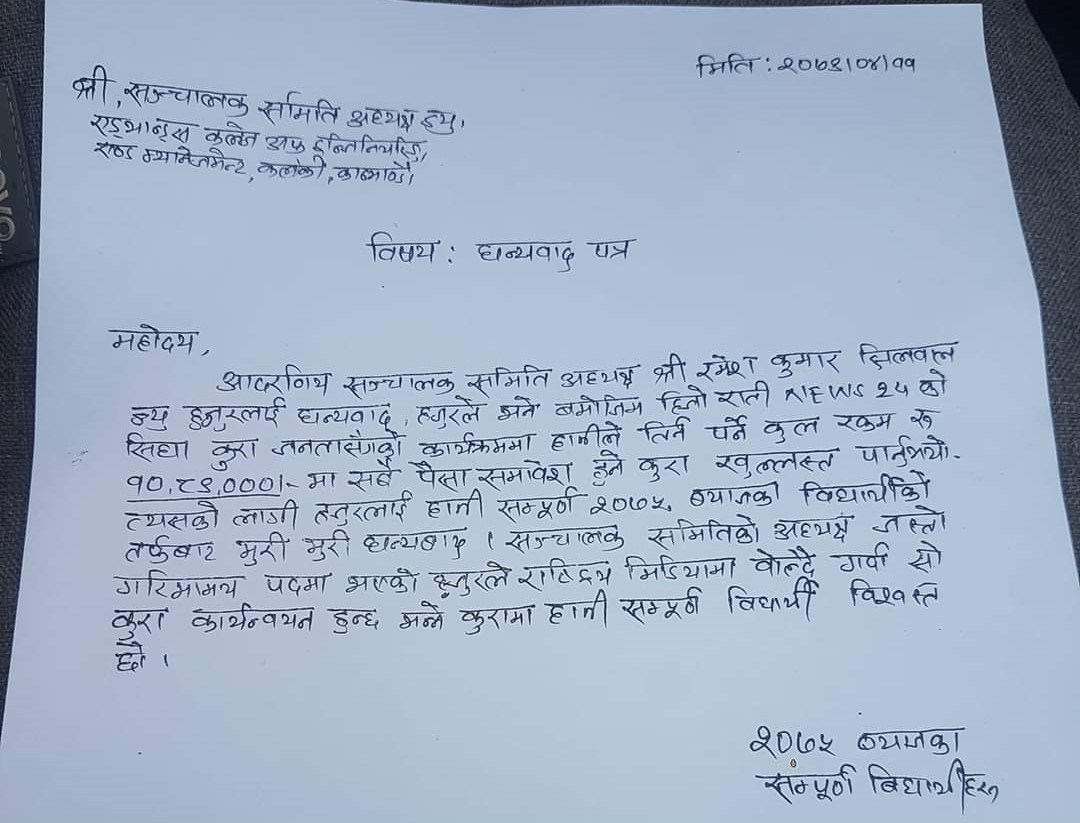 मिति : २०७९।०४।११
श्री, सञ्चालक समिति अध्यक्ष ज्यु,
एड्भान्स कलेज अफ इन्जिनियरिङ्ग,
एण्ड म्यानेजमेन्ट, कलंकी, काठमाडौं।
विषय : धन्यवाद पत्र
महोदय,
आदरणिय सञ्चालक समिति अध्यक्ष श्री रमेश कुमार सिलवाल
ज्यु हजुरलाई धन्यवाद, हजुरले भने बमोजिम हिजो राती NEWS 24 को
सिधा कुरा जनतासँगको कार्यक्रममा हामीले तिर्न पर्ने कुल रकम रू
१०,८९,०००।- मा सबै पैसा समावेश हुने कुरा खुल्लस्त पार्नुभयो.
त्यसको लागी हजुरलाई हामी सम्पूर्ण २०७५ ब्याजका विद्यार्थीको
तर्फबाट भुरी भुरी धन्यबाद । सञ्चालक समितिको अध्यक्ष जस्तो
गरिमामय पदमा भएको हजुरले राष्ट्रिय मिडियामा बोल्दै गर्दा सो
कुरा कार्यन्वयन हुन्छ भन्ने कुरामा हामी सम्पूर्ण विद्यार्थी विश्वस्त
छौ ।
२०७५ ब्याजका
सम्पूर्ण बिद्यार्थीहरू